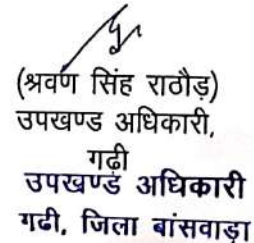 (श्रवण सिंह राठौड़)
उपखण्ड अधिकारी,
गढी
उपखण्ड अधिकारी
गढी, जिला बांसवाड़ा